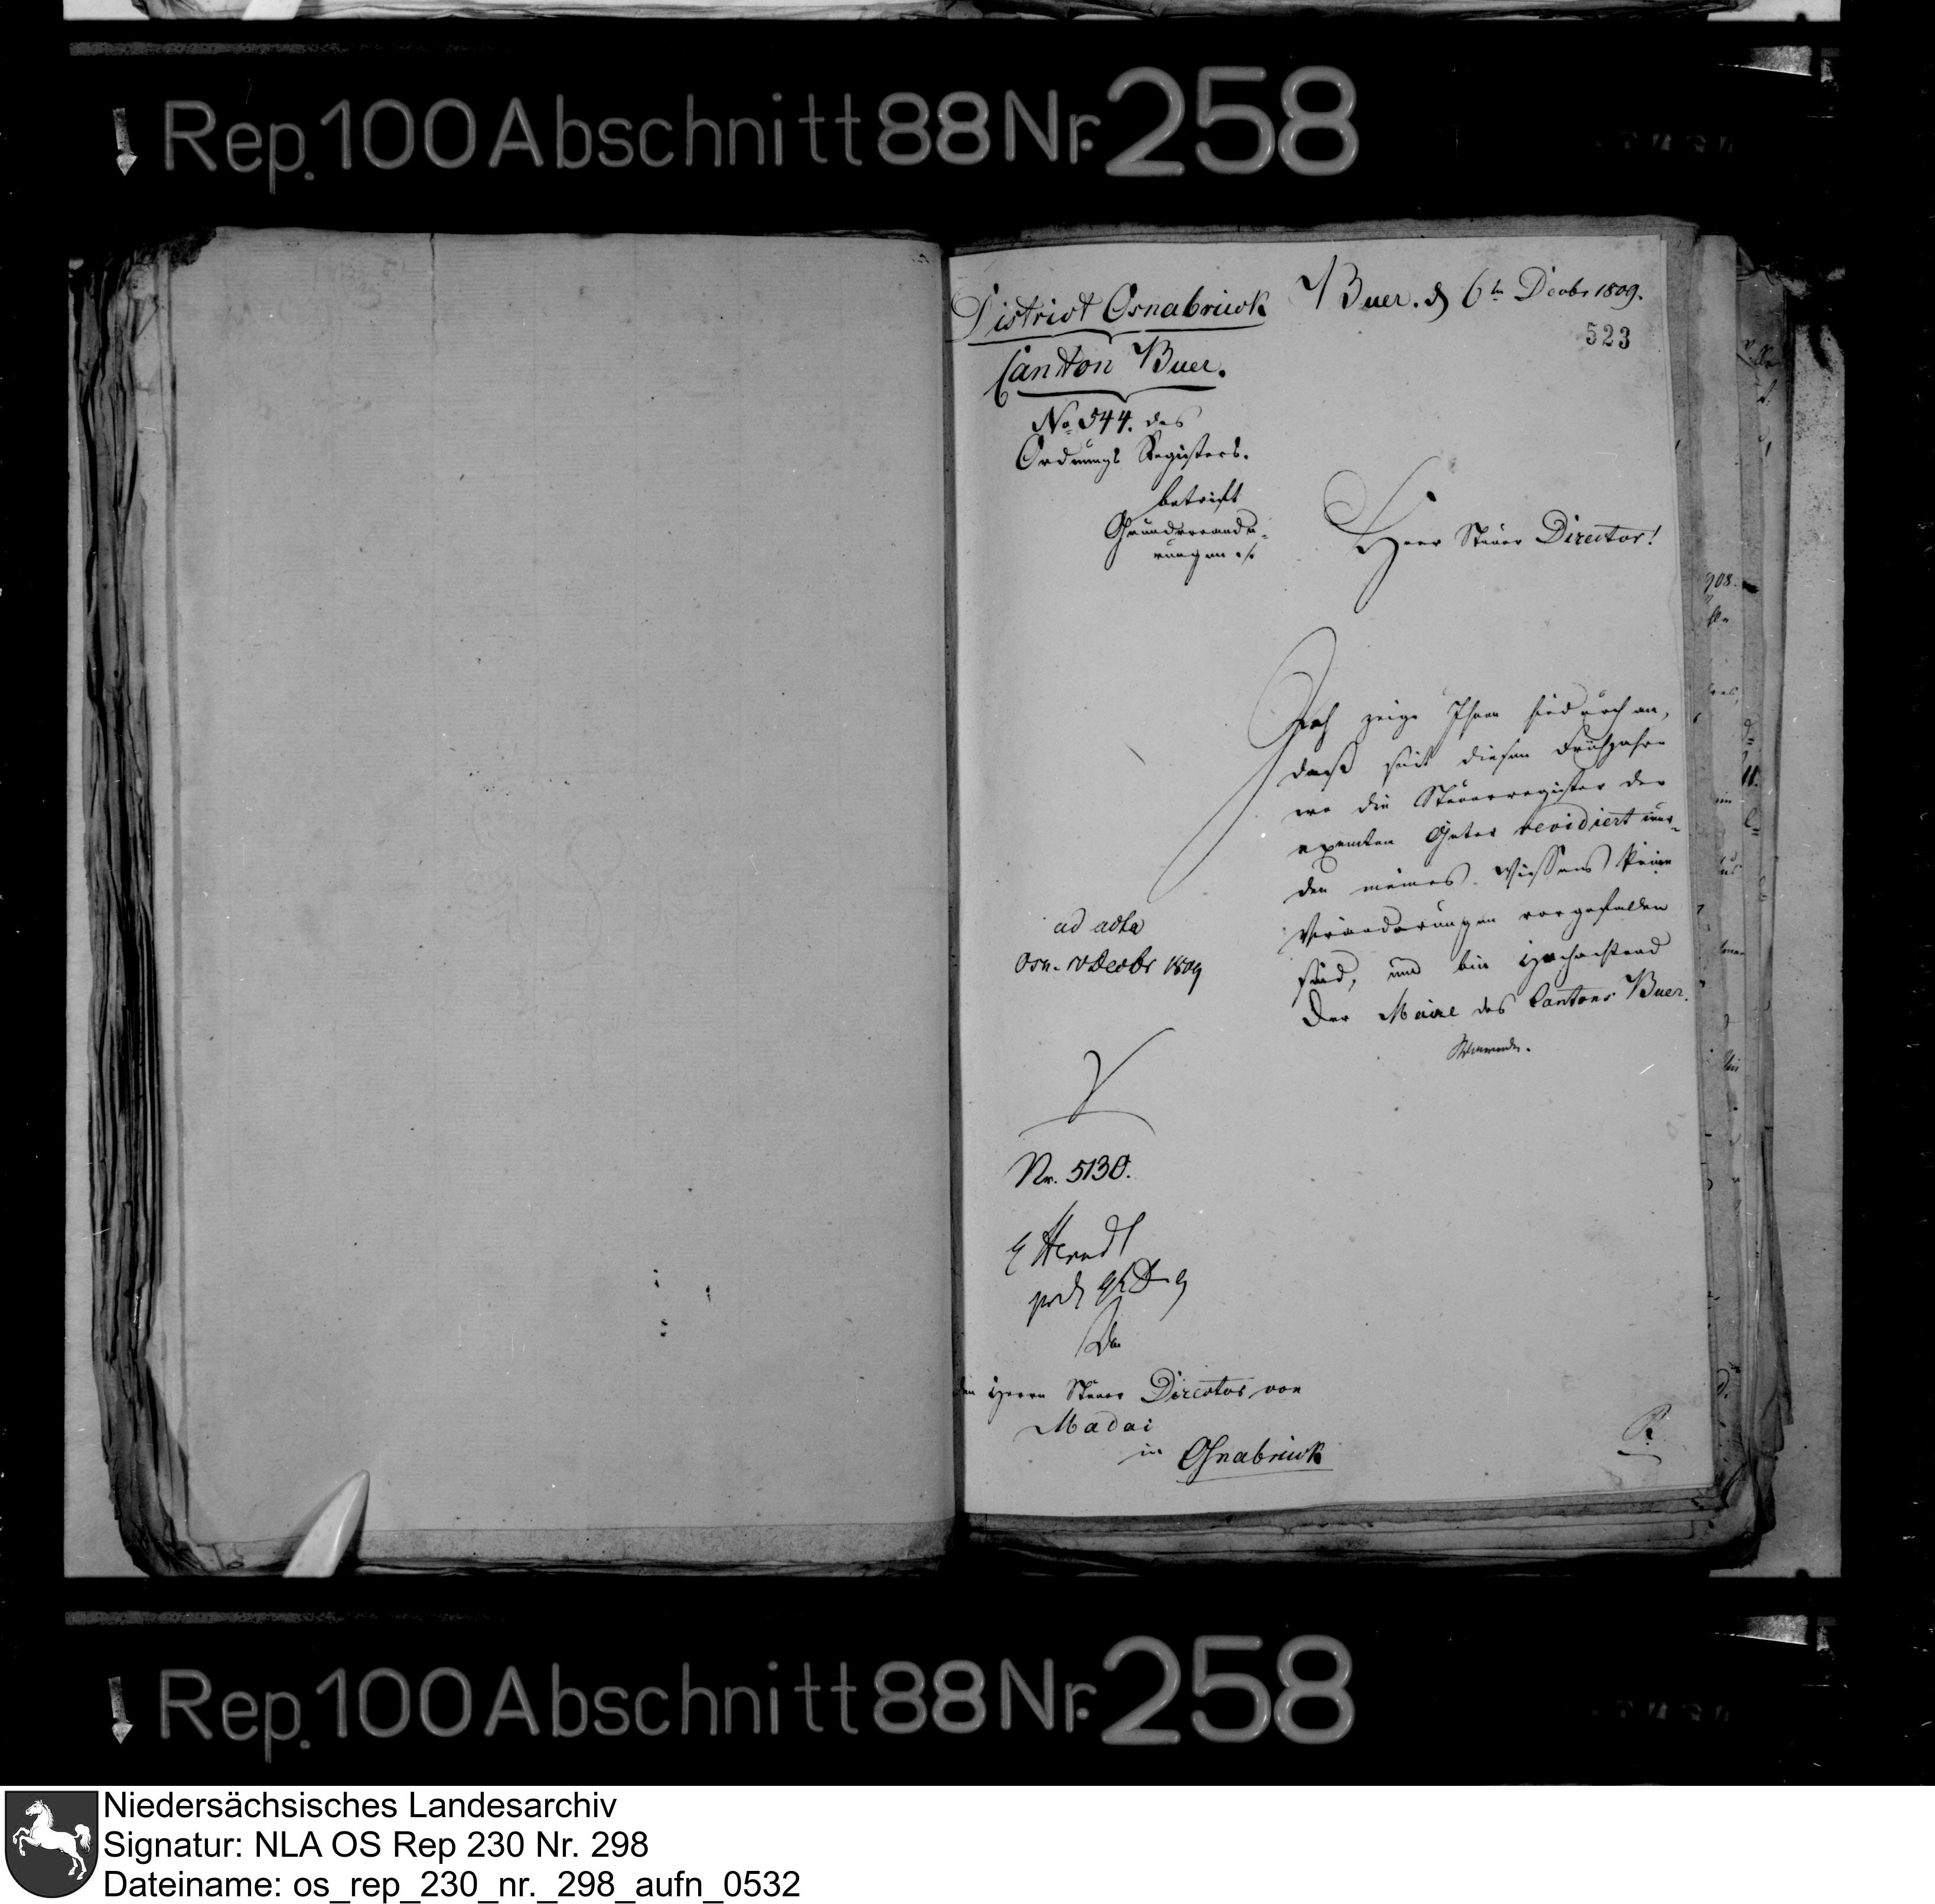 Rep. 100 Abschnitt 88 Nr. 258
District Osnabrück
Canton Buer.
Buer. d 6tn Decbr 1809.
523
No 544. des
Ordnungs Registers.
betrift
Grundverände-
rungen
Herr Steuer Director!
Ich zeige Ihnen hiedurch an,
daß seit diesem Frühjahre
wo die Steuerregister der
exemten Güter revidiert wur-
den meines Wissens keine
Veränderungen vorgefallen
sind, und bin Hochachtend
Der Maire des Cantons Buer.
ad acta
Osn. 10 Decbr 1809
Nr. 5130.
An
den Herrn Steuer Director von
Madai
in Osnabrück
R
Rep. 100 Abschnitt 88 Nr. 258
Niedersächsisches Landesarchiv
Signatur: NLA OS Rep 230 Nr. 298
Dateiname: os_rep_230_nr._298_aufn_0532